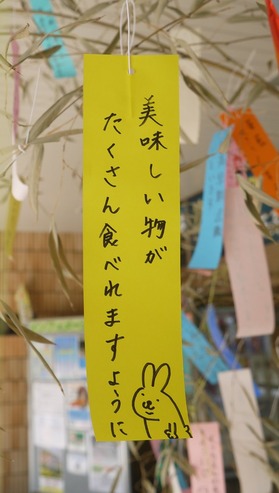 美味しい物が
たくさん食べれますように